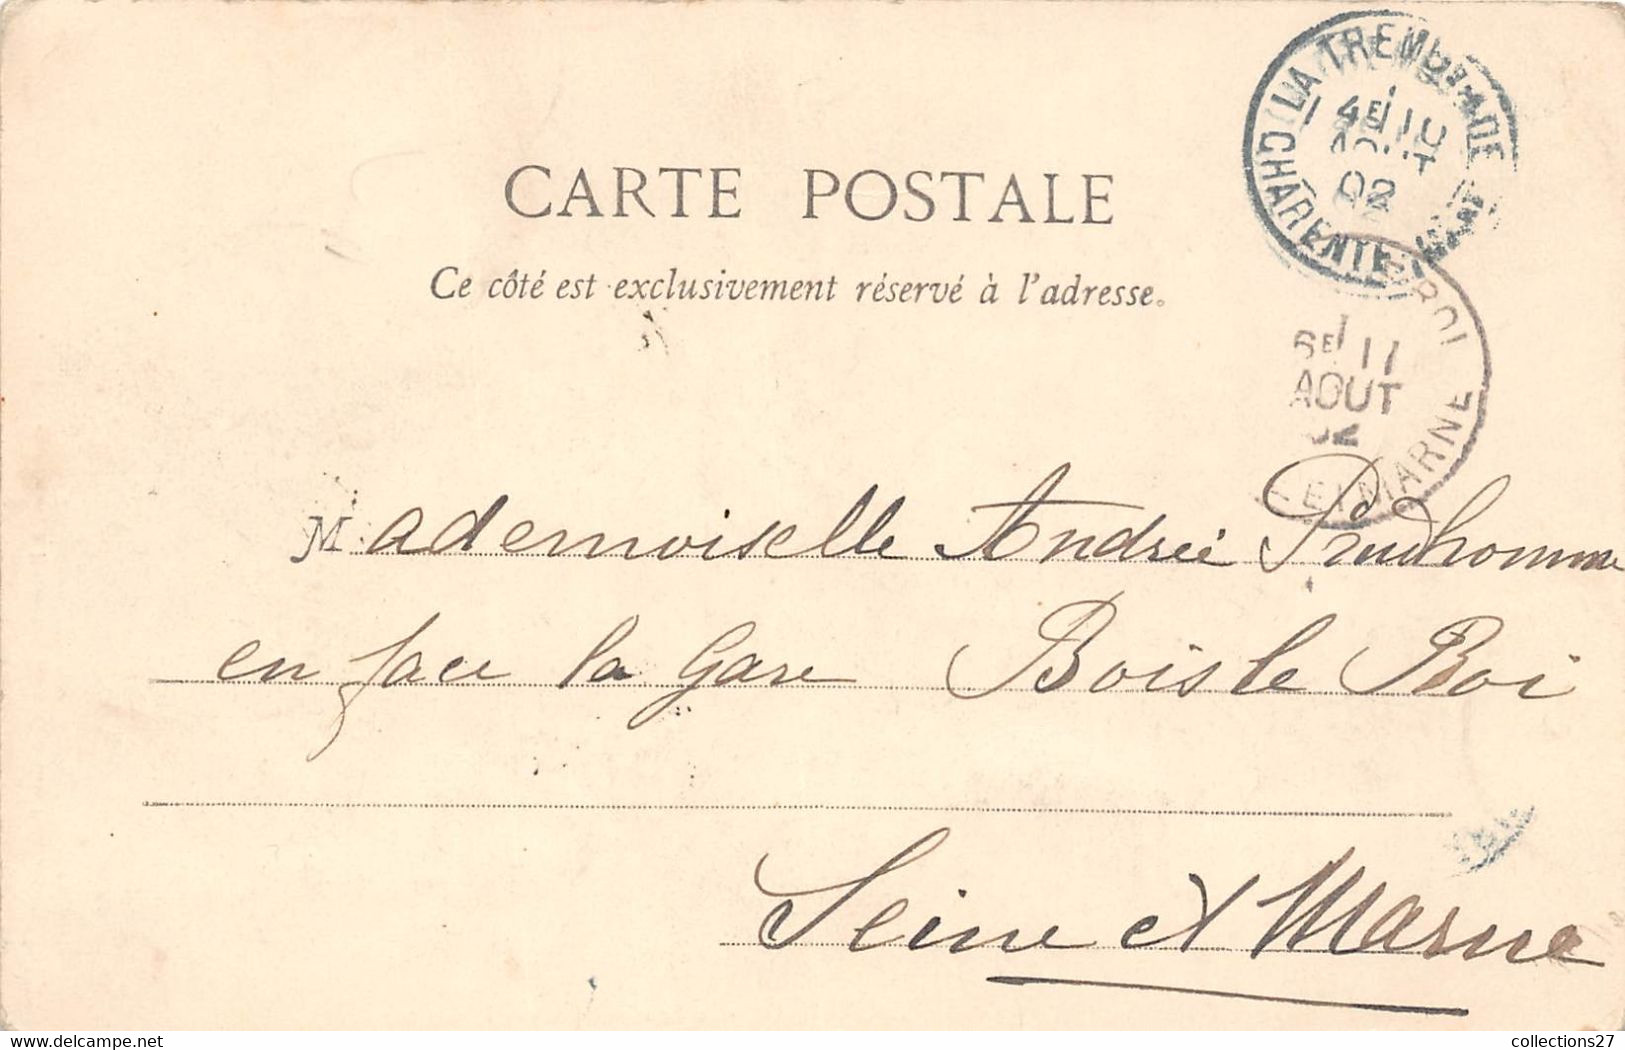 CARTE POSTALE
Ce côté est exclusivement réservé à l'adresse.
LA TREMBLADE
4E 10
AOUT
02
CHARENTE INF
ROI
6E 11
AOUT
02
ET MARNE
Mademoiselle Andrée Prudhomme
en face la Gare Bois le Roi
Seine et Marne
www.delcampe.net
collections27